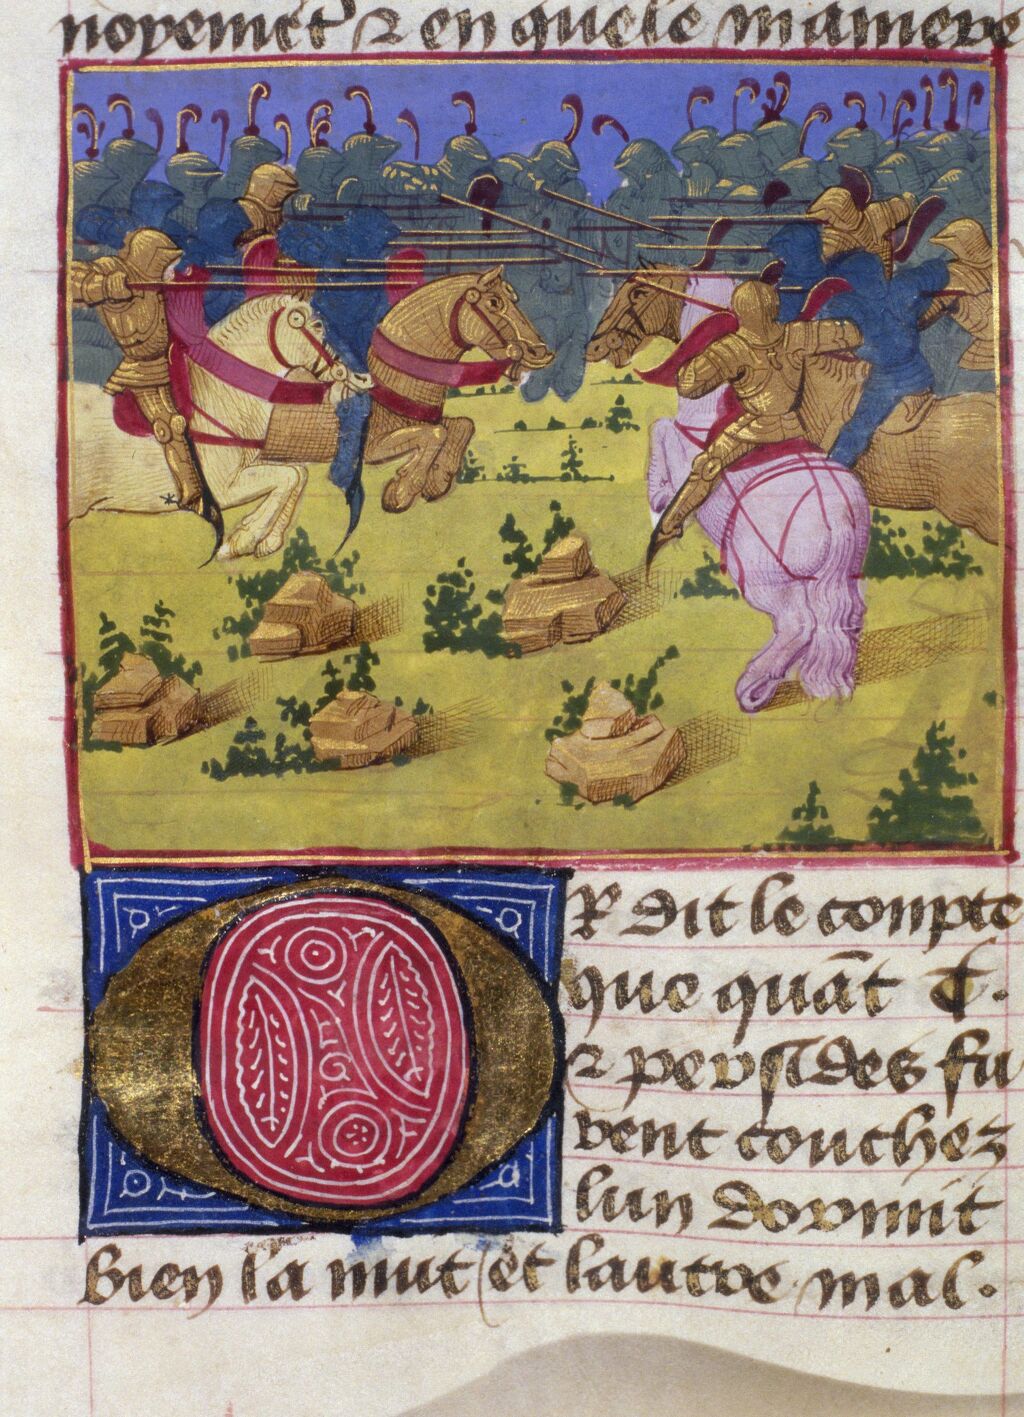 noyent & en quele maniere
Or dit le compte
que quāt T.
& persides fu
rent couchez
lun dormit
bien la nuit et lautre mal.